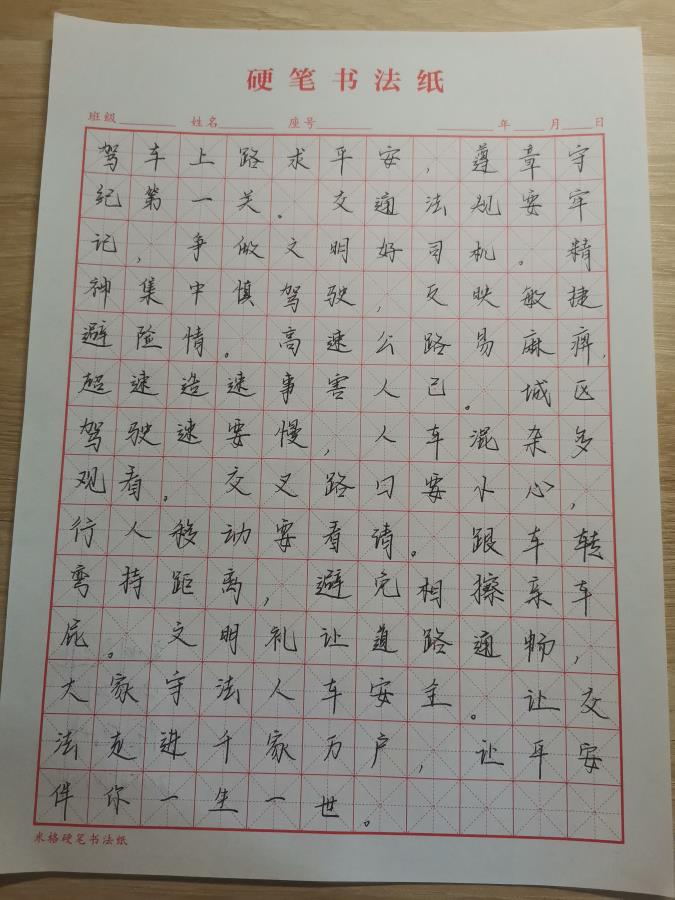 硬笔书法纸
班级 姓名 座号 年 月 日
驾车上路求平安，遵章守
纪第一关。交通法规要牢
记，争做文明好司机。精
神集中慎驾驶，反映敏捷
避险情。高速公路易麻痹，
超速造速事害人己。城区
驾驶速要慢，人车混杂多
观看。交叉路口要小心，
行人移动要看清。跟车转
弯持距离，避免相擦亲车
屁。文明礼让道路通畅，
大家守法人车安全。让交
法走进千家万户，让平安
伴你一生一世。
米格硬笔书法纸